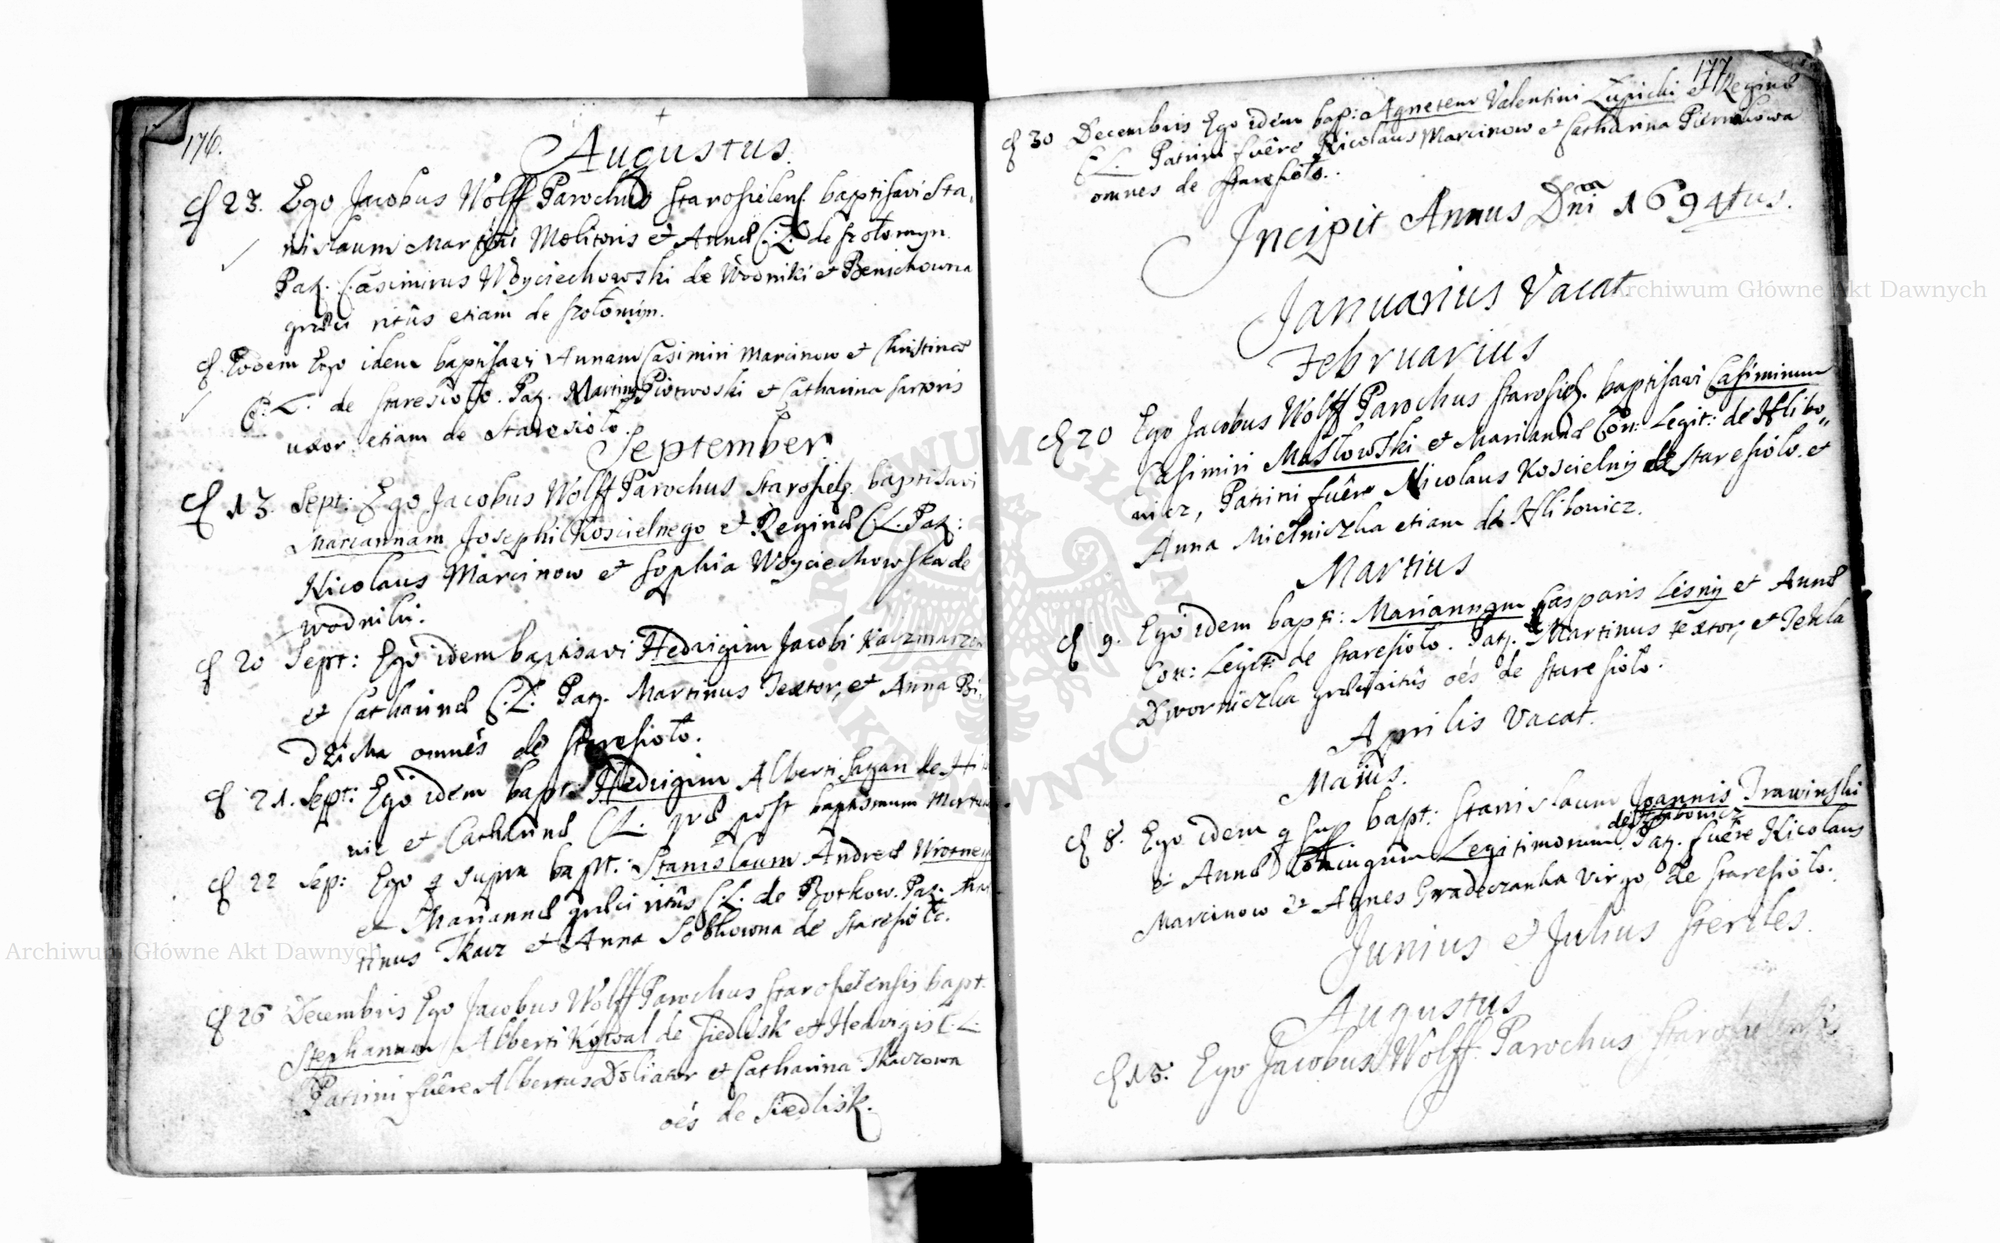 176.
Augustus.
23. Ego Jacobus Wolff Parochus Starosielens. baptisavi Sta,
nislaum Martini Molitoris et Annæ C.L. de
Pat. Casimirus Woyciechowski de Wodniki et Benichowna
græci ritûs etiam de
Eodem Ego idem baptisavi Annam Casimiri Marcinow et Christinæ
C.L. de Staresioło. Pat. Martinus Piotrwoski et Catharina Sartoris
uxor etiam de Staresioło.
September.
13. Sept: Ego Jacobus Wolff Parochus Starosiel. baptisavi
Mariannam Josephi Koscielnego et Reginæ C.L. Pat:
Nicolaus Marcinow et Sophia Woyciechowska de
Wodniki.
20 Sept: Ego idem baptisavi Hedvigim Jacobi
et Catharinæ C.L. Pat. Martinus Textor, et Anna Bi,
omnes de Staresioło.
21. Sept: Ego idem bapt: Hedvigim Alberti Sagan de
et Catharinæ C.L. post baptismum
22 Sep: Ego q supra bapt: Stanislaum Andreæ
et Mariannæ græci ritûs C.L. de Borkow. Pat. Mar
tinus Tkacz et Anna Sobkowna de Staresioło.
26 Decembris Ego Jacobus Wolff Parochus Starosielensis bapt.
Stephanum Alberti Kowal de Siedlisk et Hedvigis C.L.
Patrini fuêre Albertus Doliator et Catharina Tkaczowa
oēs de Siedlisk.
177
30 Decembris Ego idem bap: Agnetem Valentini Łupicki et Reginæ
C.L. Patrini fuêre Nicolaus Marcinow et Catharina
omnes de Staresioło.
Incipit Annus Dni 1694tus.
Januarius Vacat
Februarius
20 Ego Jacobus Wolff Parochus Starosiel. baptisavi Casimirum
Casimiri Masłowski et Mariannæ Con: Legit: de Hlibo,,
wicz, Patrini fuêre Nicolaus Koscielny de Staresioło et
Anna Mielniczka etiam de Hlibowicz.
Martius
9. Ego idem bapt: Mariannam Casparis Lesny et Annæ
Con: Legit: de Staresioło. Pat. Martinus textor, et Tekla
Dworniczka græci ritûs oēs de Staresioło.
Aprilis Vacat.
Maius.
8. Ego idem q sup bapt: Stanislaum Joannis Trawinski
de Hlibowicz
et Annæ Coniugum Legitimorum, Pat. fuêre Nicolaus
Marcinow et Agnes Gradeczanka virgo, de Staresioło.
Junius et Julius Steriles.
Augustus
15. Ego Jacobus Wolff Parochus Starosielensis
Archiwum Główne Akt Dawnych
Archiwum Główne Akt Dawnych
ARCHIWUM GŁÓWNE AKT DAWNYCH